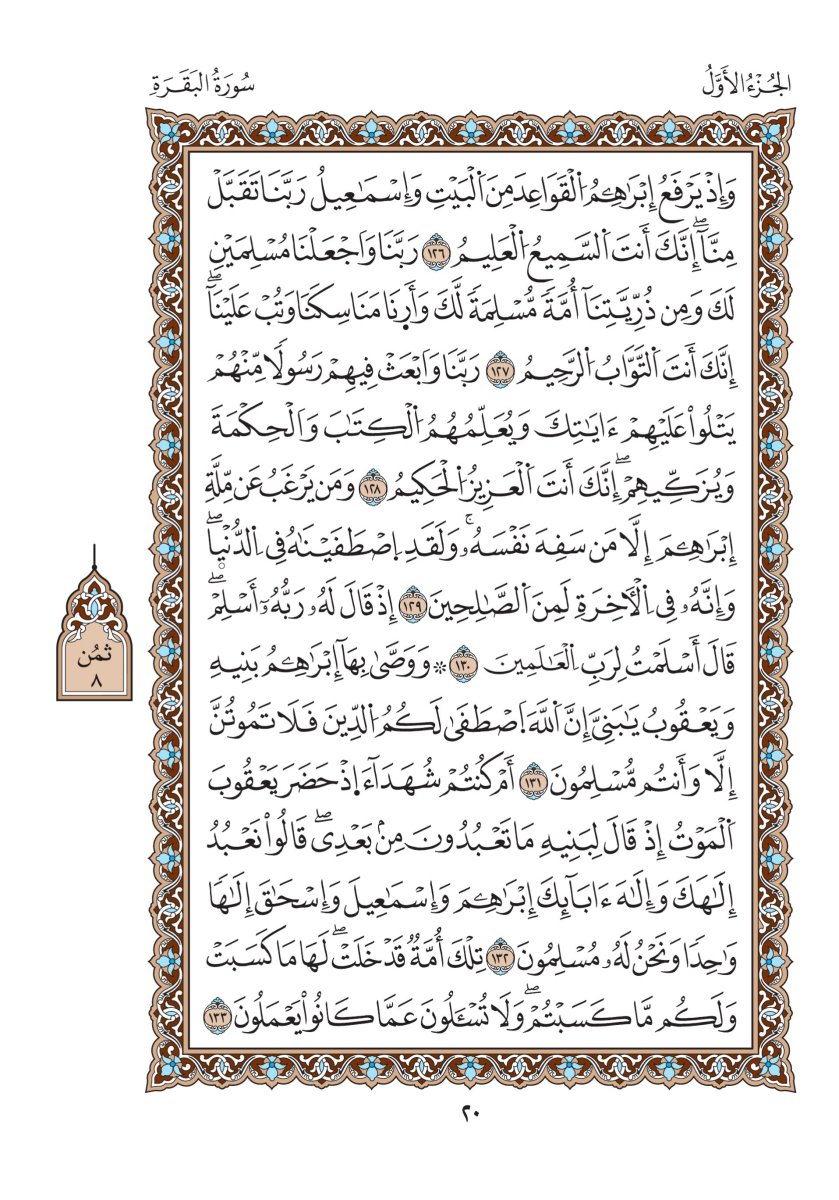 الجُزْءُ الأَوَّلُ
سُورَةُ البَقَرَةِ
وَإِذْ يَرْفَعُ إِبْرَٰهِيمُ اُ۬لْقَوَاعِدَ مِنَ اَ۬لْبَيْتِ وَإِسْمَٰعِيلُ رَبَّنَا تَقَبَّلْ
مِنَّآۖ إِنَّكَ أَنتَ اَ۬لسَّمِيعُ اُ۬لْعَلِيمُ ١٢٦ رَبَّنَا وَاجْعَلْنَا مُسْلِمَيْنِ
لَكَ وَمِن ذُرِّيَّتِنَآ أُمَّةٗ مُّسْلِمَةٗ لَّكَ وَأَرِنَا مَنَاسِكَنَا وَتُبْ عَلَيْنَآۖ
إِنَّكَ أَنتَ اَ۬لتَّوَّابُ اُ۬لرَّحِيمُ ١٢٧ رَبَّنَا وَابْعَثْ فِيهِمْ رَسُولٗا مِّنْهُمْ
يَتْلُواْ عَلَيْهِمْ ءَايَٰتِكَ وَيُعَلِّمُهُمُ اُ۬لْكِتَٰبَ وَالْحِكْمَةَ
وَيُزَكِّيهِمْۖ إِنَّكَ أَنتَ اَ۬لْعَزِيزُ اُ۬لْحَكِيمُ ١٢٨ وَمَن يَرْغَبُ عَن مِّلَّةِ
إِبْرَٰهِيمَ إِلَّا مَن سَفِهَ نَفْسَهُۥۚ وَلَقَدِ اِ۪صْطَفَيْنَٰهُ فِي اِ۬لدُّنْيۭاۖ
وَإِنَّهُۥ فِي اِ۬لْأٓخِرَةِ لَمِنَ اَ۬لصَّٰلِحِينَ ١٢٩ إِذْ قَالَ لَهُۥ رَبُّهُۥٓ أَسْلِمْۖ
قَالَ أَسْلَمْتُ لِرَبِّ اِ۬لْعَٰلَمِينَ ١٣٠ ۞ وَوَصَّىٰ بِهَآ إِبْرَٰهِيمُ بَنِيهِ
وَيَعْقُوبُ يَٰبَنِيَّ إِنَّ اَ۬للَّهَ اَ۪صْطَفَىٰ لَكُمُ اُ۬لدِّينَ فَلَا تَمُوتُنَّ
إِلَّا وَأَنتُم مُّسْلِمُونَ ١٣١ أَمْ كُنتُمْ شُهَدَآءَ اِ۪ذْ حَضَرَ يَعْقُوبَ
اَ۬لْمَوْتُ إِذْ قَالَ لِبَنِيهِ مَا تَعْبُدُونَ مِنۢ بَعْدِيۖ قَالُواْ نَعْبُدُ
إِلَٰهَكَ وَإِلَٰهَ ءَابَآئِكَ إِبْرَٰهِيمَ وَإِسْمَٰعِيلَ وَإِسْحَٰقَ إِلَٰهٗا
وَٰحِدٗا وَنَحْنُ لَهُۥ مُسْلِمُونَ ١٣٢ تِلْكَ أُمَّةٞ قَدْ خَلَتْۖ لَهَا مَا كَسَبَتْ
وَلَكُم مَّا كَسَبْتُمْۖ وَلَا تُسْـَٔلُونَ عَمَّا كَانُواْ يَعْمَلُونَ ١٣٣
ثمُن
٨
٢٠